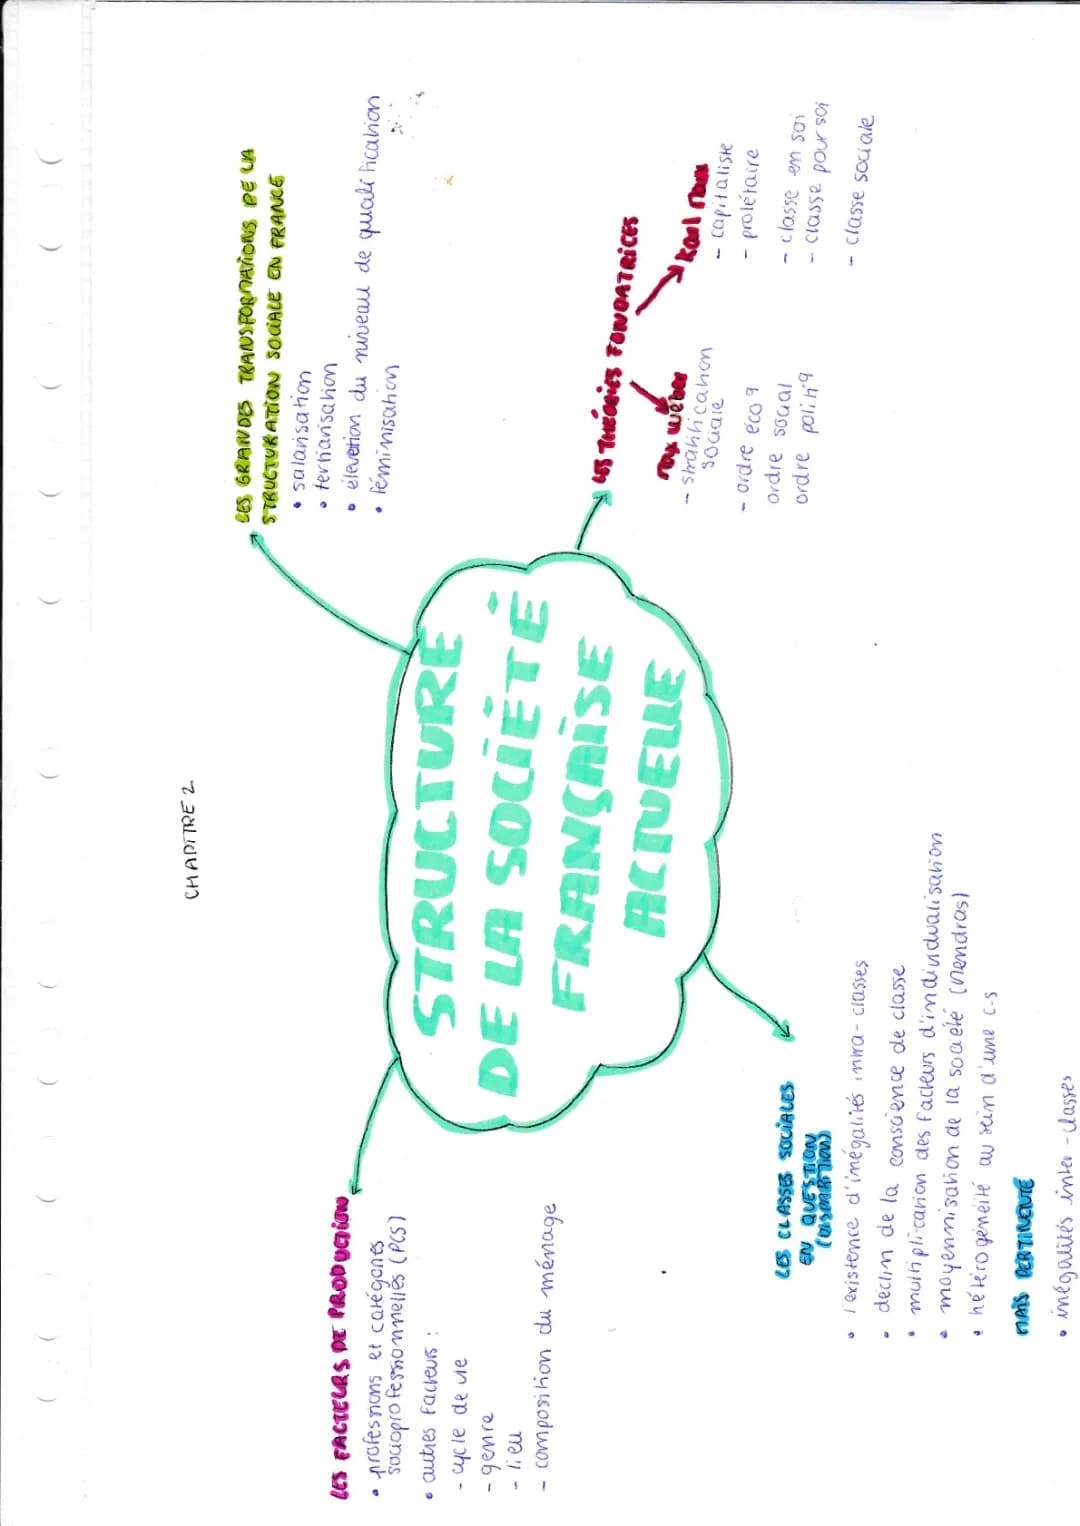 CHAPITRE 2
LES FACTEURS DE PRODUCTION
• professions et catégories
socioprofessionnelles (PCS)
• autres facteurs :
- cycle de vie
- genre
- lieu
- composition du ménage
LES GRANDES TRANSFORMATIONS DE LA
STRUCTURATION SOCIALE EN FRANCE
• salarisation
• tertiarisation
• élevetion du niveau de qualification
• féminisation
STRUCTURE
DE LA SOCIÉTÉ
FRANÇAISE
ACTUELLE
LES THÉORIES FONDATRICES
Max Weber
- stratification
sociale
- ordre eco q
ordre social
ordre politiq
Karl Marx
- capitaliste
- prolétaire
- classe en soi
- classe pour soi
- classe sociale
LES CLASSES SOCIALES
EN QUESTION
(DISPARITION)
• l'existence d'inégalités intra-classes
• declin de la conscience de classe
• multiplication des facteurs d'individualisation
• moyennisation de la société (Mendras)
• hétérogénéité au sein d'une c-s
MAIS PERTINENTE
• inégalités inter-classes